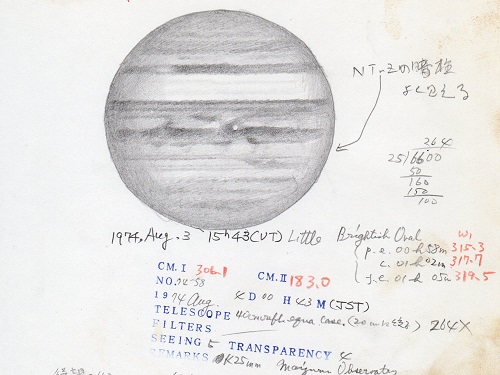 NT-Zの暗柱
よく見える
264
25)6600
50
160
150
100
1974, Aug. 3 15h43(UT) Little Brightish Oval
W1
p.e. 00h58m 315.3
c. 01h02m 317.7
f.e. 01h05m 319.5
CM.I 306.1 CM.II 183.0
NO. 74-58
1974 Aug. 4 D 00 H 43 M (JST)
TELESCOPE 40cm equa Case. (20cm 264X
FILTERS
SEEING 5 TRANSPARENCY 4
REMARKS K25mm Observatory